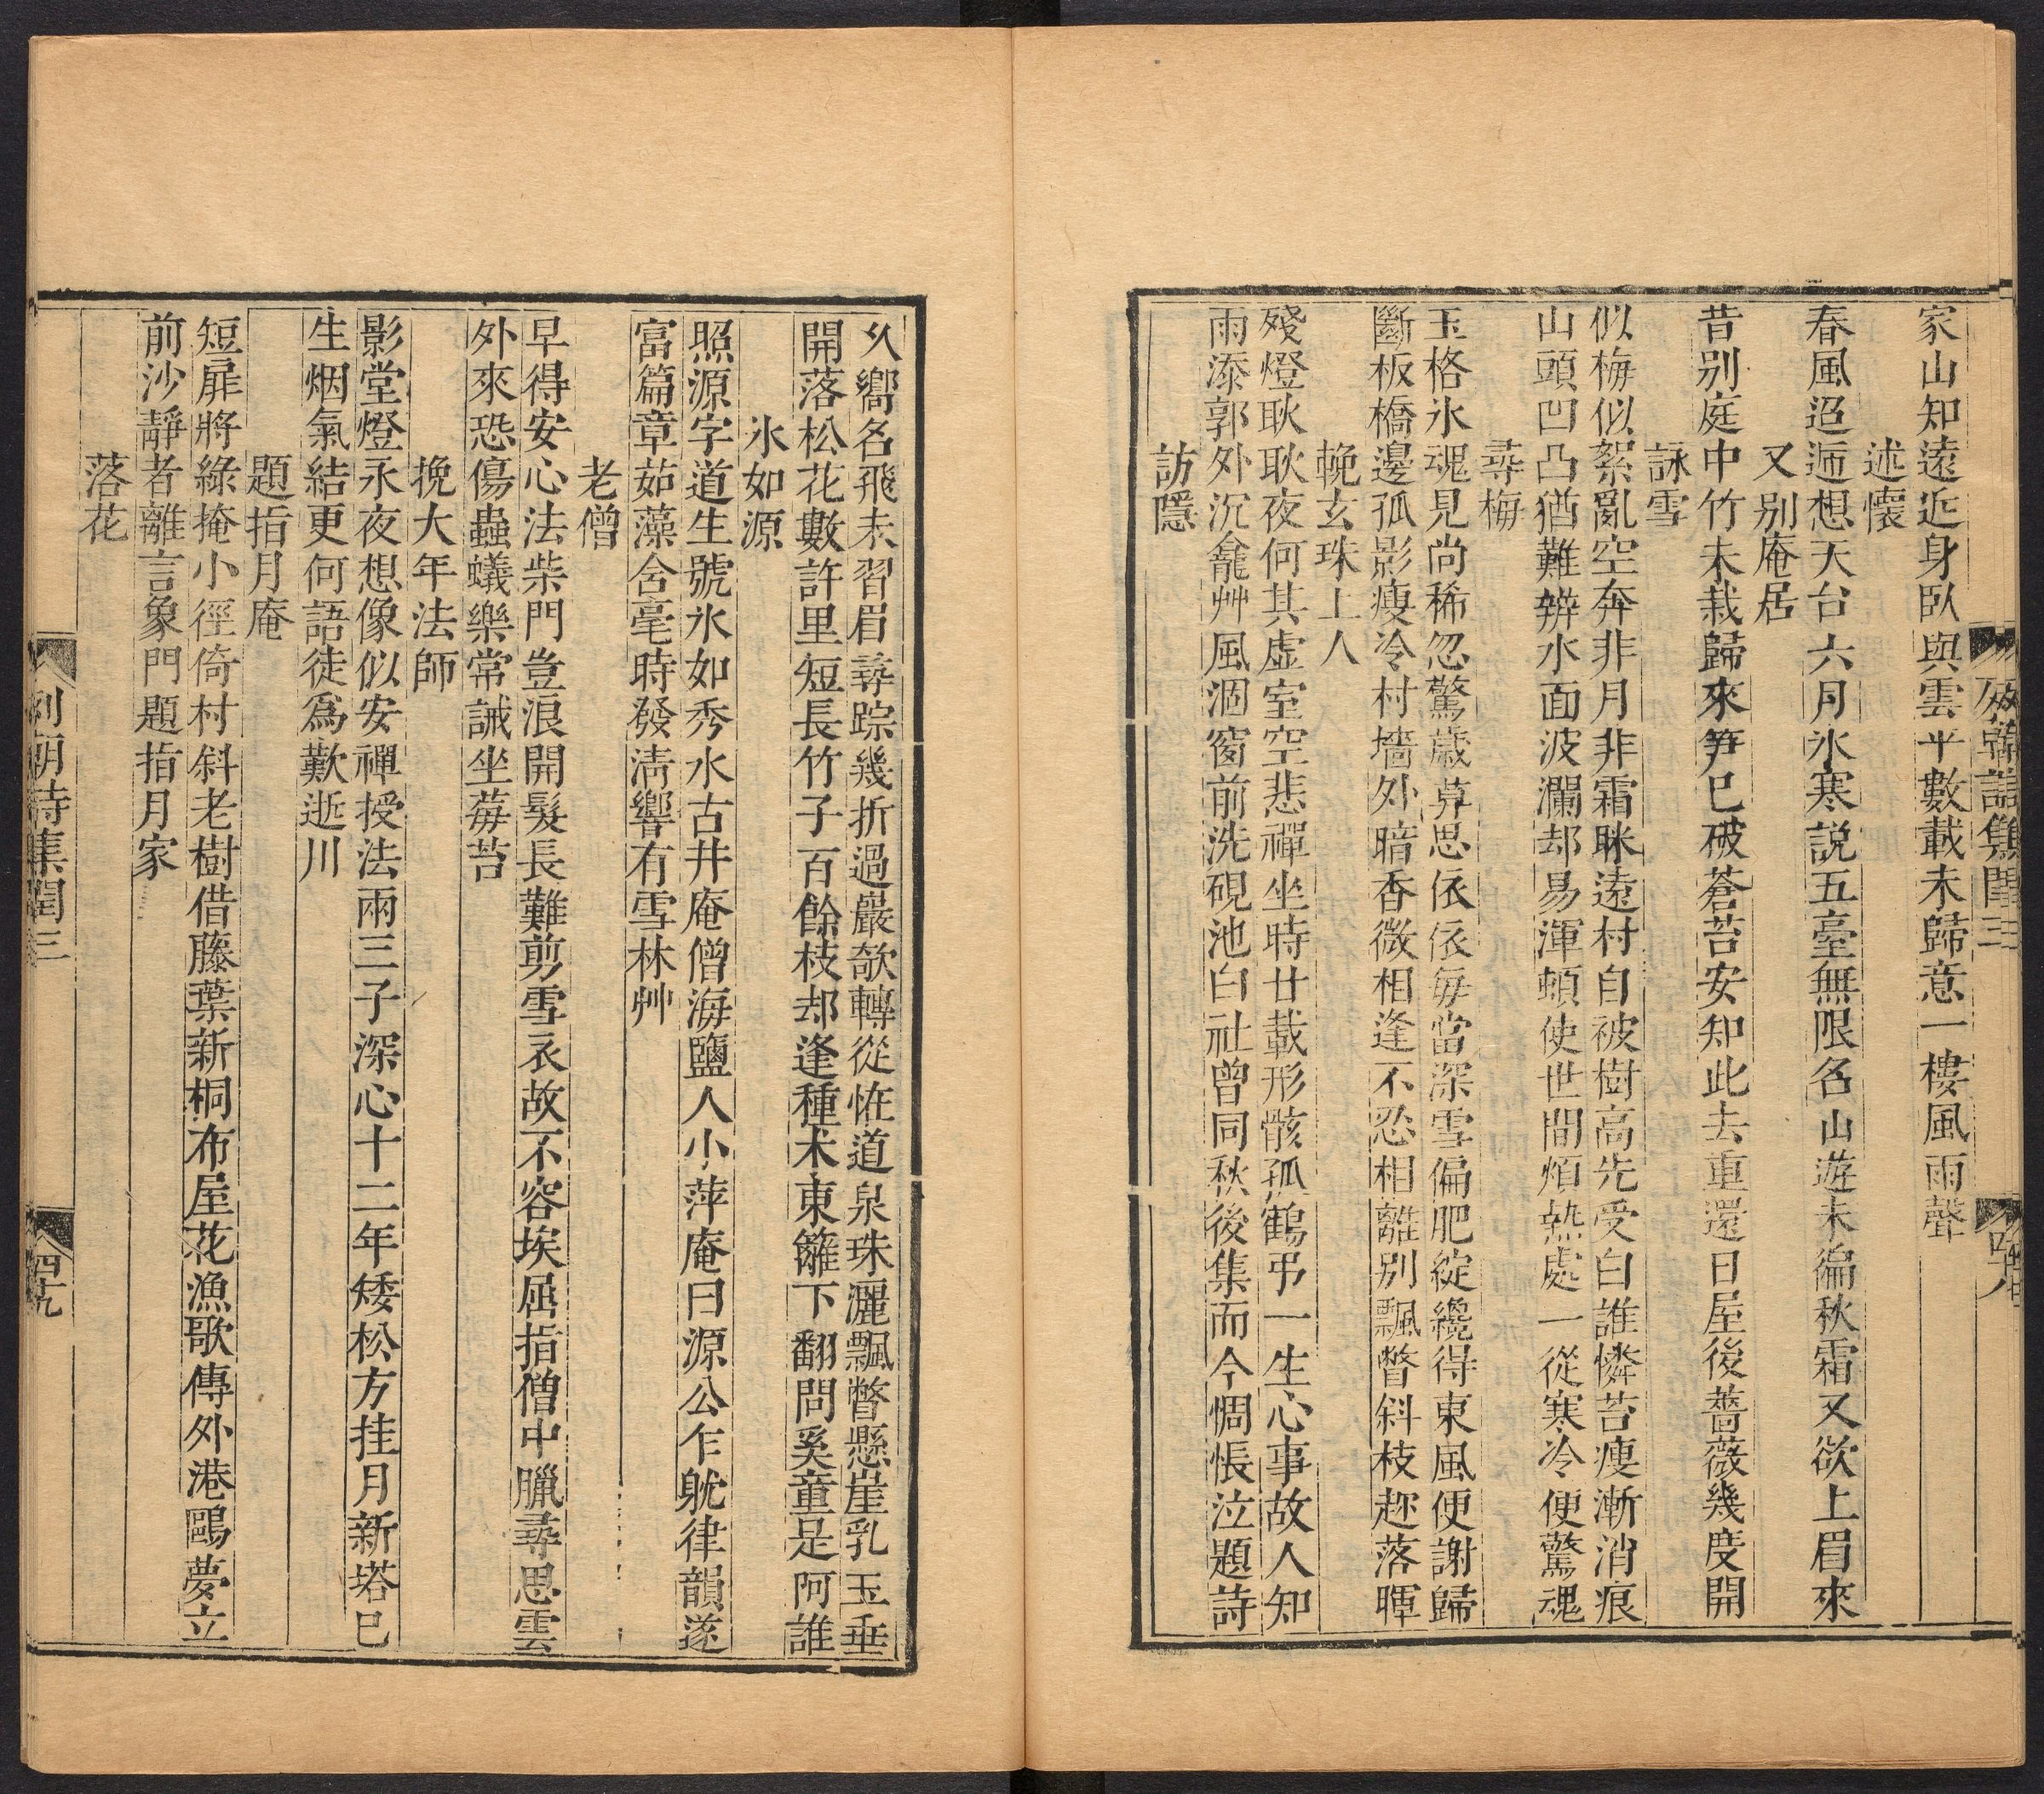 家山知遠近身臥與雲平數載未歸意一樓風雨聲
述懷
春風迢遞想天台六月氷寒説五臺無限名山遊未徧秋霜又欲上眉來
又别庵居
昔别庭中竹未栽歸來笋已破蒼苔安知此去重還日屋後薔薇幾度開
詠雪
似梅似絮亂空奔非月非霜眯遠村自被樹高先受白誰憐苔瘦漸消痕
山頭凹凸猶難辨水面波瀾却易渾頓使世間煩熱處一從寒冷便驚魂
尋梅
玉格氷魂見尚稀忽驚歲暮思依依每當深雪偏肥綻纔得東風便謝歸
斷板橋邊孤影瘦冷村墻外暗香微相逢不忍相離别飄瞥斜枝趂落暉
輓玄珠上人
殘燈耿耿夜何其虚室空悲禪坐時廿載形骸孤鶴弔一生心事故人知
雨添郭外沉龕艸風涸窗前洗硯池白社曾同秋後集而今惆悵泣題詩
訪隱
列朝詩集閏三
四十八
久嚮名飛未習眉尋踪幾折過巖欹轉從恠道泉珠灑飄瞥懸崖乳玉垂
開落松花數許里短長竹子百餘枝却逢種术東籬下翻問奚童是阿誰
氷如源
照源字道生號氷如秀水古井庵僧海鹽人小萍庵曰源公乍躭律韻遂
富篇章茹藻含毫時發清響有雪林艸
老僧
早得安心法柴門豈浪開髮長難剪雪衣故不容埃屈指僧中臘尋思雲
外來恐傷蟲蟻樂常誡坐莓苔
挽大年法師
影堂燈永夜想像似安禪授法兩三子深心十二年矮松方挂月新塔已
生烟氣結更何語徒爲歎逝川
題指月庵
短扉將綠掩小徑倚村斜老樹借藤葉新桐布屋花漁歌傳外港鷗夢立
前沙靜者離言象門題指月家
落花
列朝詩集閏三
四十九